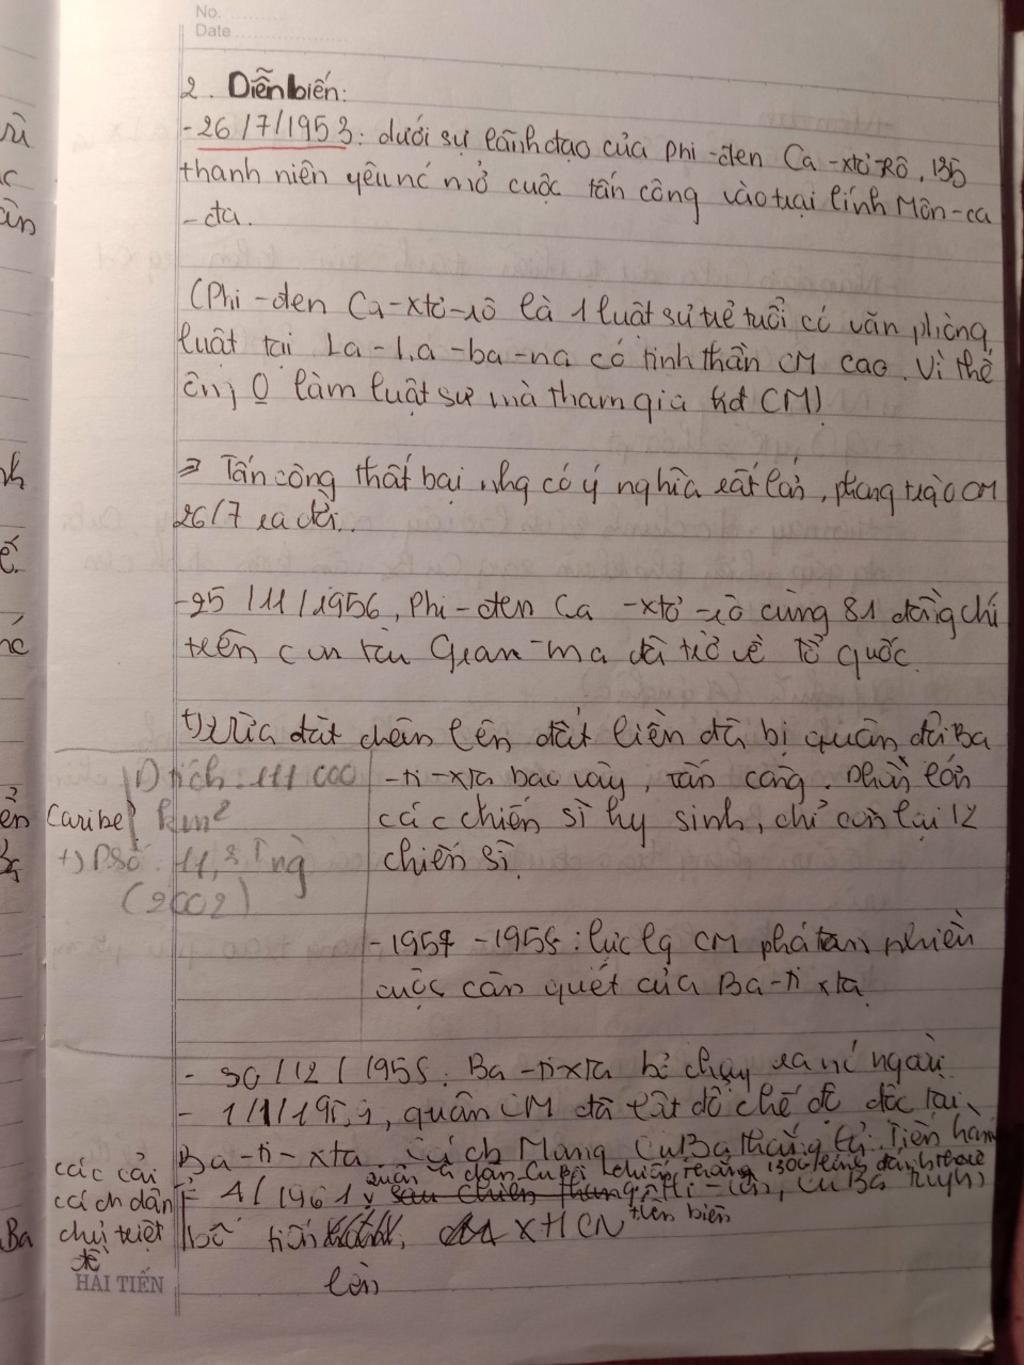 No.
Date
2. Diễn biến:
- 26/7/1953: dưới sự lãnh đạo của Phi-đen Ca-xtơ-Rô, 135
thanh niên yêu nc mở cuộc tấn công vào trại lính Môn-ca
- đa.
(Phi-đen Ca-xtơ-rô là 1 luật sư trẻ tuổi có văn phòng
luật tại La-Ha-ba-na có tinh thần CM cao. Vì thế
ông O làm luật sư mà tham gia hđ CM)
=> Tấn công thất bại nhg có ý nghĩa rất lớn, phong trào CM
26/7 ra đời.
- 25/11/1956, Phi-đen Ca-xtơ-rô cùng 81 đồng chí
trên con tàu Gran-ma đã trở về Tổ quốc.
+) Vừa đặt chân lên đất liền đã bị quân đội Ba
-ti-xta bao vây, tấn công. Phần lớn
các chiến sĩ hy sinh, chỉ còn lại 12
chiến sĩ.
D tích: 111 000
Caribe km²
+) Dsố: 11,3 Tng
(2002)
- 1957 - 1958: lực lg CM phá tan nhiều
cuộc càn quét của Ba-ti xta
- 30/12/1958: Ba-ti-xta bỏ chạy ra nc ngoài.
- 1/1/1959, quân CM đã lật đổ chế độ độc tài
Ba-ti-xta. Cách Mạng CuBa thắng lợi. Tiến hành
các cải
cách dân
chủ triệt
để
quân & dân CuBa chiến thắng 1300 lính đánh thuê
4/1961 sau chiến thắng Hi-rôn, CuBa tuyên
bố tiến XHCN
tiên biển
lên
HẢI TIẾN